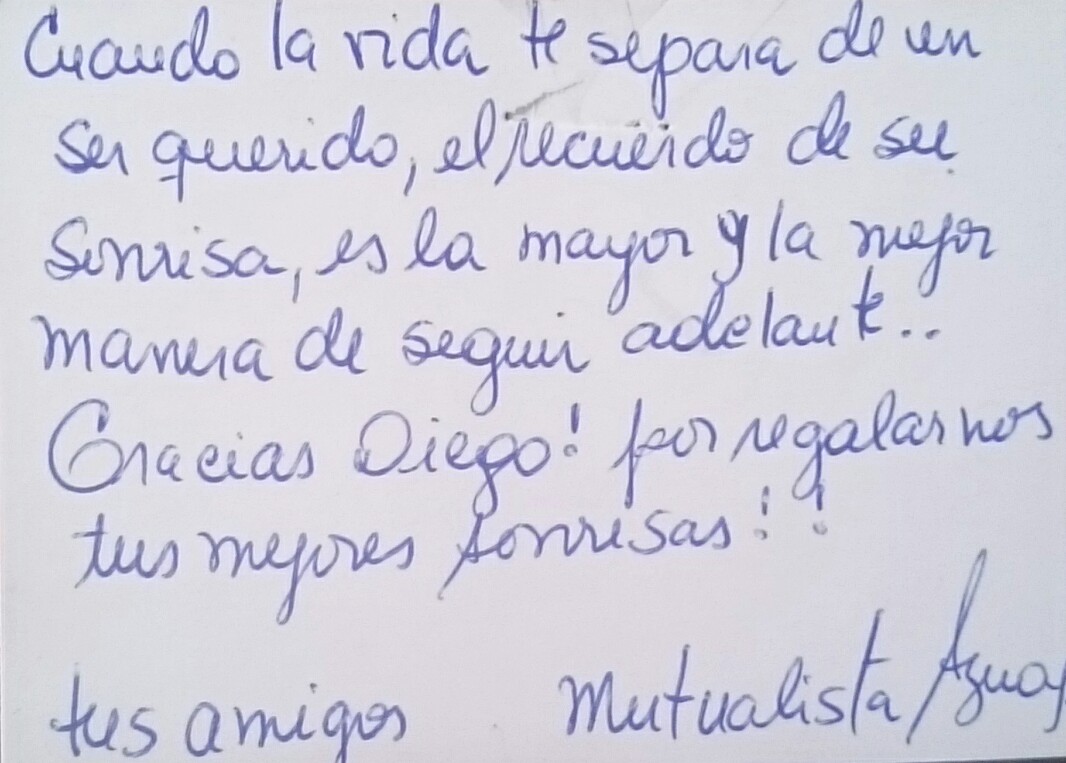 Cuando la vida te separa de un
ser querido, el recuerdo de su
Sonrisa, es la mayor y la mejor
manera de seguir adelante..
Gracias Diego! por regalarnos
tus mejores sonrisas!!
tus amigos Mutualista Azuay